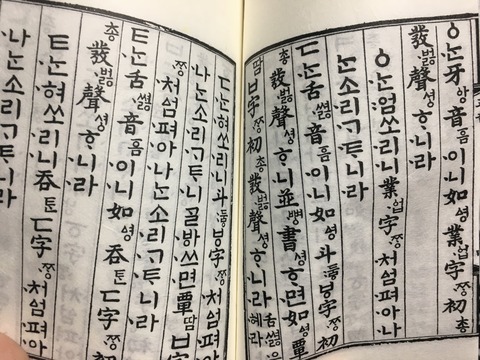 ㆁᄂᆞᆫ牙ᅌᅡᆼ音ᅙᅳᆷ이니如ᅀᅧᆼ業ᅌᅥᆸ字ᄍᆞᆼ初총
發벓聲셩ᄒᆞ니라
ㆁᄂᆞᆫ엄쏘리니業ᅌᅥᆸ字ᄍᆞᆼ처ᅀᅥᆷ펴아나
ᄂᆞᆫ소리ᄀᆞᄐᆞ니라
ㄷᄂᆞᆫ舌쎯音ᅙᅳᆷ이니如ᅀᅧᆼ斗두ᇢㅸ字ᄍᆞᆼ初
총發벓聲셩ᄒᆞ니並뼝書셩ᄒᆞ면如ᅀᅧᆼ
땀ㅂ字ᄍᆞᆼ初총發벓聲셩ᄒᆞ니라
ㄷᄂᆞᆫ혀쏘리니斗두ᇢㅸ字ᄍᆞᆼ처ᅀᅥᆷ펴아
나ᄂᆞᆫ소리ᄀᆞᄐᆞ니ᄀᆞᆯᄫᅡ쓰면覃땀ㅂ字
ᄍᆞᆼ처ᅀᅥᆷ펴아나ᄂᆞᆫ소리ᄀᆞᄐᆞ니라
ㅌᄂᆞᆫ舌쎯音ᅙᅳᆷ이니如ᅀᅧᆼ呑ᄐᆞᆫㄷ字ᄍᆞᆼ初
총發벓聲셩ᄒᆞ니라
ㅌᄂᆞᆫ혀쏘리니呑ᄐᆞᆫㄷ字ᄍᆞᆼ처ᅀᅥᆷ펴아
나ᄂᆞᆫ소리ᄀᆞᄐᆞ니라